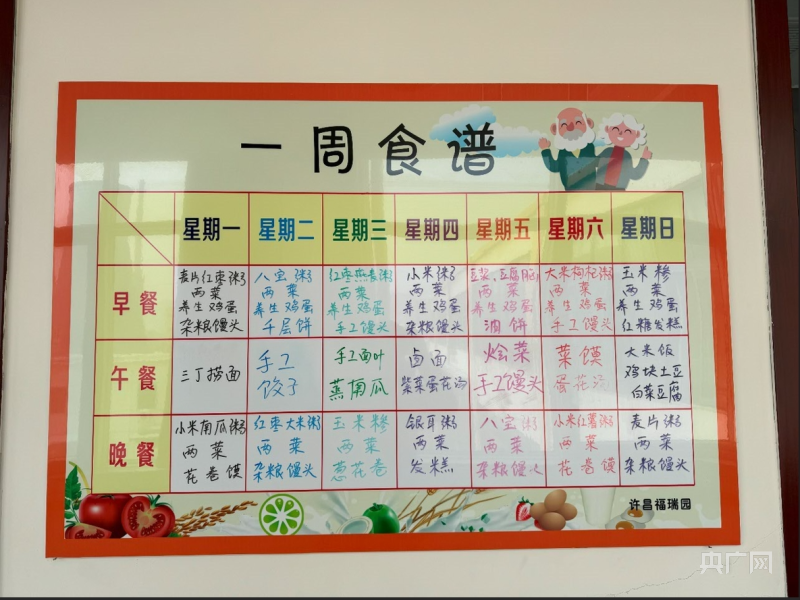 一周食谱
星期一 星期二 星期三 星期四 星期五 星期六 星期日
早餐
麦片红枣粥 八宝粥 红枣燕麦粥 小米粥 豆浆、豆腐脑 大米枸杞粥 玉米糁
两菜 两菜 两菜 两菜 两菜 两菜 两菜
养生鸡蛋 养生鸡蛋 养生鸡蛋 养生鸡蛋 养生鸡蛋 养生鸡蛋 养生鸡蛋
杂粮馒头 千层饼 手工馒头 杂粮馒头 油饼 手工馒头 红糖发糕
午餐
三丁捞面 手工 手工面叶 卤面 烩菜 菜馍 大米饭
饺子 蒸南瓜 紫菜蛋花汤 手工馒头 蛋花汤 鸡块土豆
白菜豆腐
晚餐
小米南瓜粥 红枣大米粥 玉米糁 银耳粥 八宝粥 小米红薯粥 麦片粥
两菜 两菜 两菜 两菜 两菜 两菜 两菜
花卷馍 杂粮馒头 葱花卷 发糕 杂粮馒头 花卷馍 杂粮馒头
许昌福瑞园
央广网